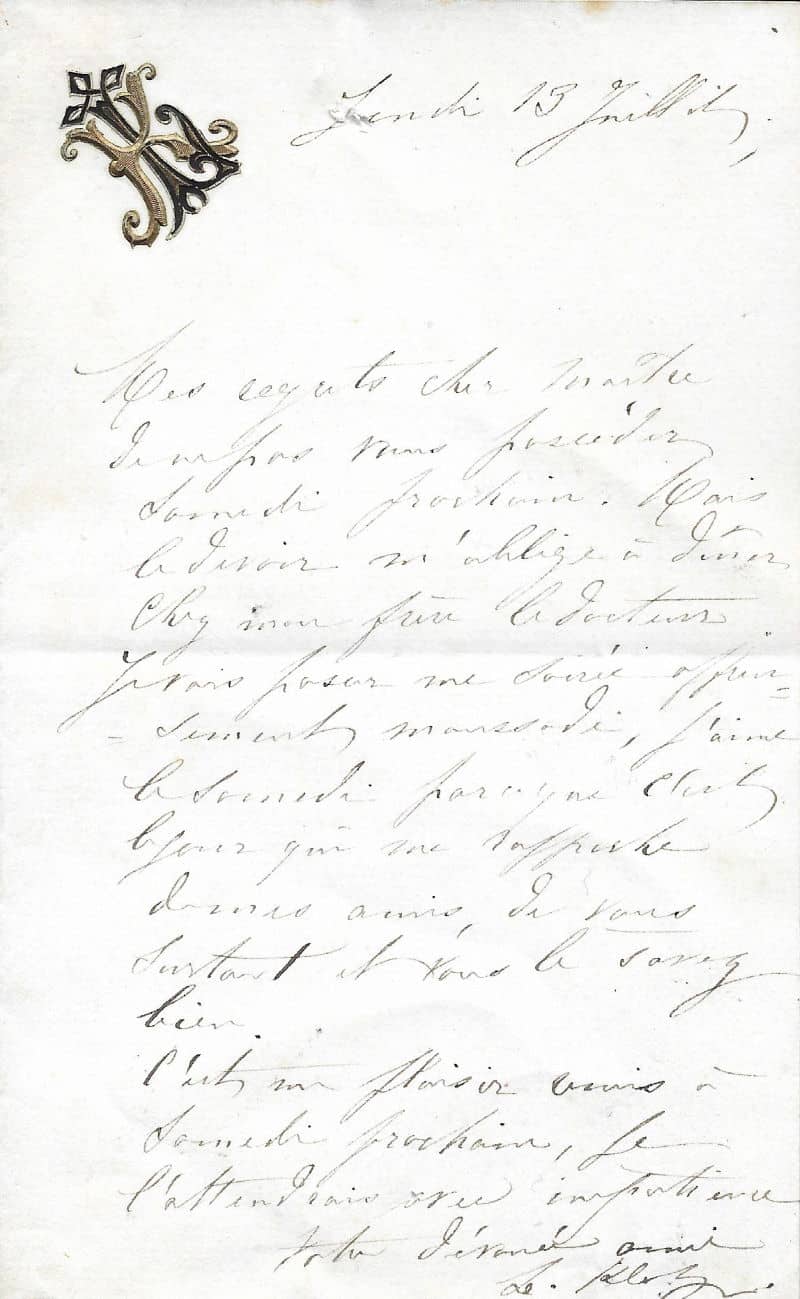 Jeudi 13 Juillet,
Mes regrets cher Maître
de ne pas vous posséder
Samedi prochain. Mais
le devoir m'oblige à dîner
chez mon frère le docteur
Je vais passer une soirée affreu-
-sement maussade, j'aime
le Samedi parce que c'est
le jour qui me rapproche
de mes amis, de vous
surtout et vous le savez
bien.
C'est un plaisir remis à
Samedi prochain, Je
l'attendrais avec impatience
Votre dévouée amie